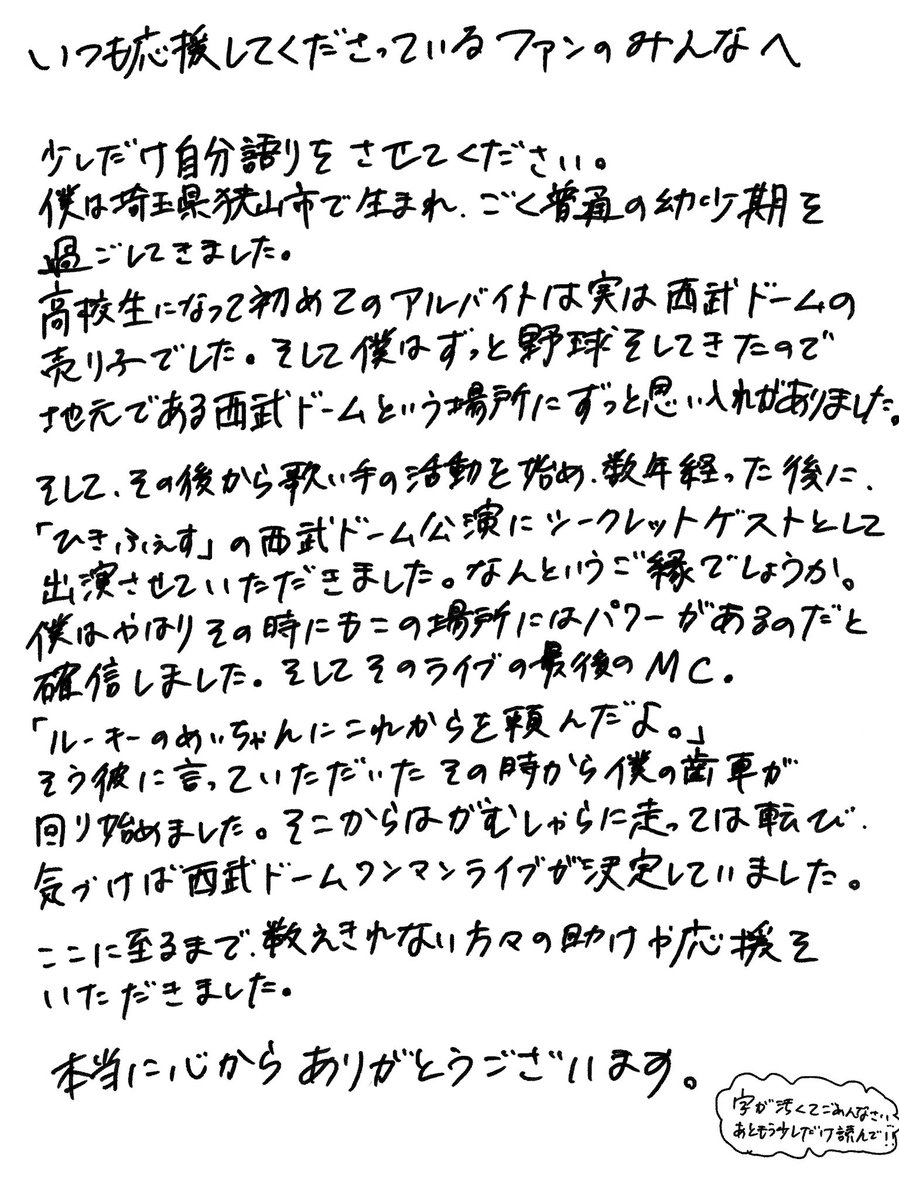 いつも応援してくださっているファンのみんなへ
少しだけ自分語りをさせてください。
僕は埼玉県狭山市で生まれ、ごく普通の幼少期を
過ごしてきました。
高校生になって初めてのアルバイトは実は西武ドームの
売り子でした。そして僕はずっと野球をしてきたので
地元である西武ドームという場所にずっと思い入れがありました。
そして、その後から歌い手の活動を始め、数年経った後に、
「ひきふぇす」の西武ドーム公演にシークレットゲストとして
出演させていただきました。なんというご縁でしょうか。
僕はやはりその時にもこの場所にはパワーがあるのだと
確信しました。そしてそのライブの最後のMC。
「ルーキーのめいちゃんにこれからを頼んだよ。」
そう彼に言っていただいたその時から僕の歯車が
回り始めました。そこからはがむしゃらに走っては転び、
気づけば西武ドームワンマンライブが決定していました。
ここに至るまで、数えきれない方々の助けや応援を
いただきました。
本当に心からありがとうございます。
字が汚くてごめんなさい
あともう少しだけ読んで!!